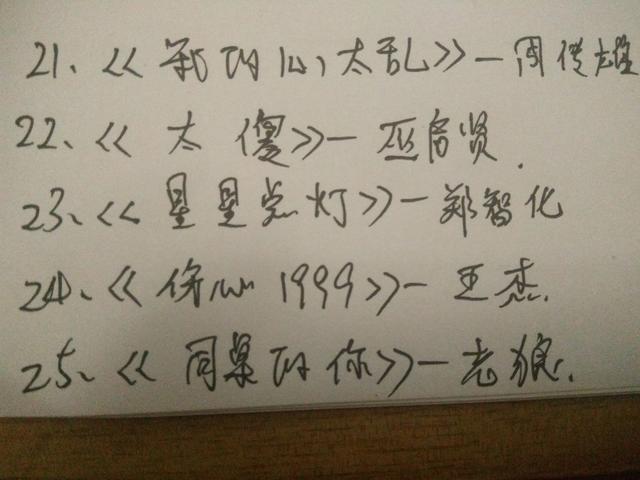 21、《我的心太乱》—周传雄
22、《太傻》—巫启贤.
23、《星星点灯》—郑智化
24、《伤心1999》—王杰.
25、《同桌的你》—老狼.